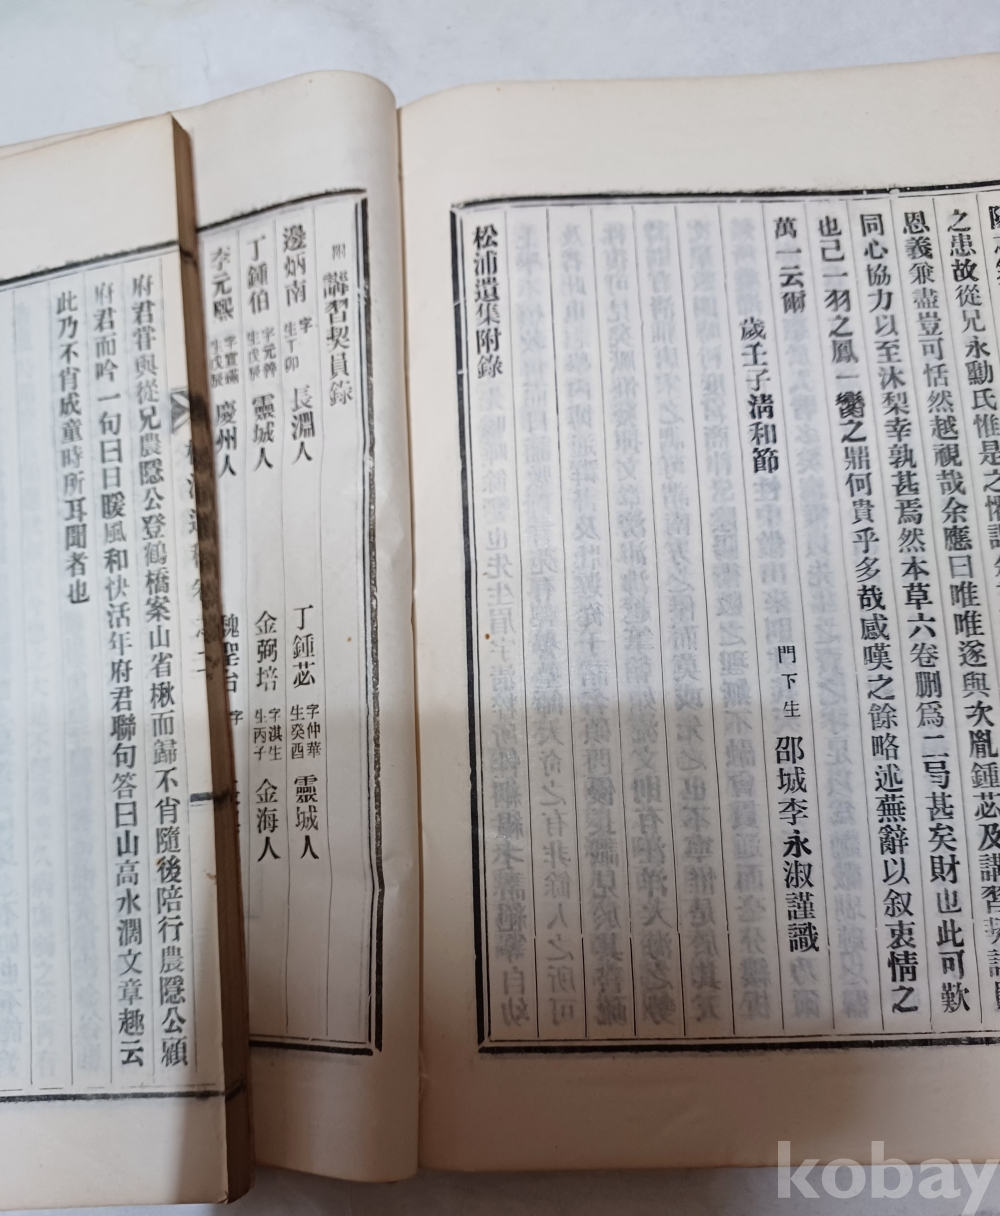 之患故從兄永勳氏惟是之懼謀
恩義兼盡豈可恬然越視哉余應曰唯唯遂與次胤鍾苾及講習契諸
同心協力以至沐梨幸孰甚焉然本草六卷刪爲二弓甚矣財也此可歎
也已一羽之鳳一臠之鼎何貴乎多哉感嘆之餘略述蕪辭以叙衷情之
萬一云爾
歲壬子淸和節
門下生 邵城李永淑謹識
松浦遺集附錄
附 講習契員錄
邊炳南 字 生丁卯 長淵人 丁鍾苾 字仲華 生癸酉 靈城人
丁鍾伯 字元 生戊辰 靈城人 金弼培 字淇生 生丙子 金海人
李元熙 生戊辰 慶州人 魏聖台 字
府君甞與從兄農隱公登鶴橋案山省楸而歸不肖隨後陪行農隱公顧
府君而吟一句曰日暖風和快活年府君聯句答曰山高水濶文章趣云
此乃不肖成童時所耳聞者也
kobay